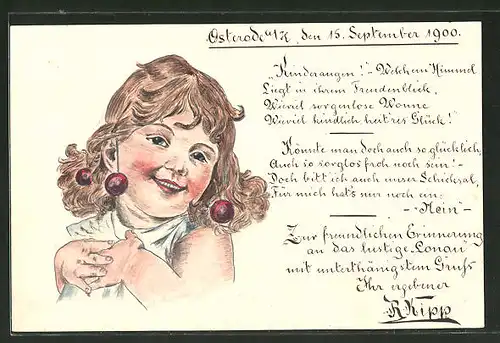 Osterode a/H, den 15. September 1900.
„Kinderaugen!" - Welch ein Himmel
Liegt in ihrem Freudenblick,
Wieviel sorgenlose Wonne
Wieviel kindlich heit'res Glück!
Könnte man doch auch so glücklich,
Auch so sorglos froh noch sein! -
Doch bitt' ich auch unser Schicksal,
Für mich hat's nur noch ein:
- „Nein" -
Zur freundlichen Erinnerung
an das lustige Lonau
mit unterthänigstem Gruss
Ihr ergebener
R Kipp